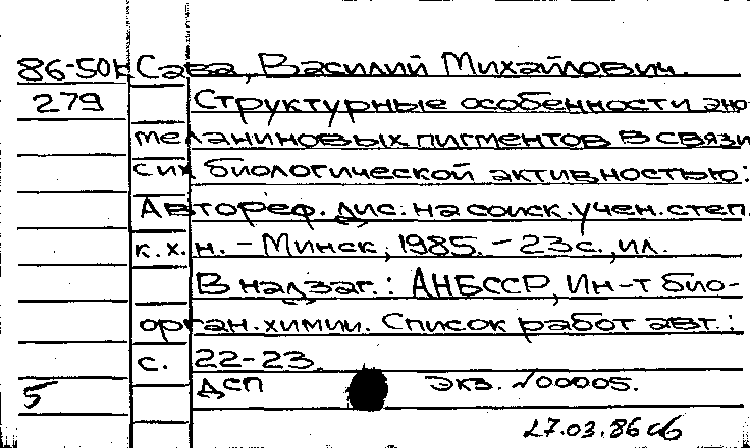 86-50к Сава, Василий Михайлович.
279 Структурные особенности эно-
меланиновых пигментов в связи
с их биологической активностью:
Автореф. дис. на соиск. учен. степ.
к.х.н. - Минск, 1985. - 23 с., ил.
В надзаг.: АНБССР, Ин-т био-
орган. химии. Список работ авт.:
с. 22-23.
5 ДСП Экз. №00005.
27.03.86